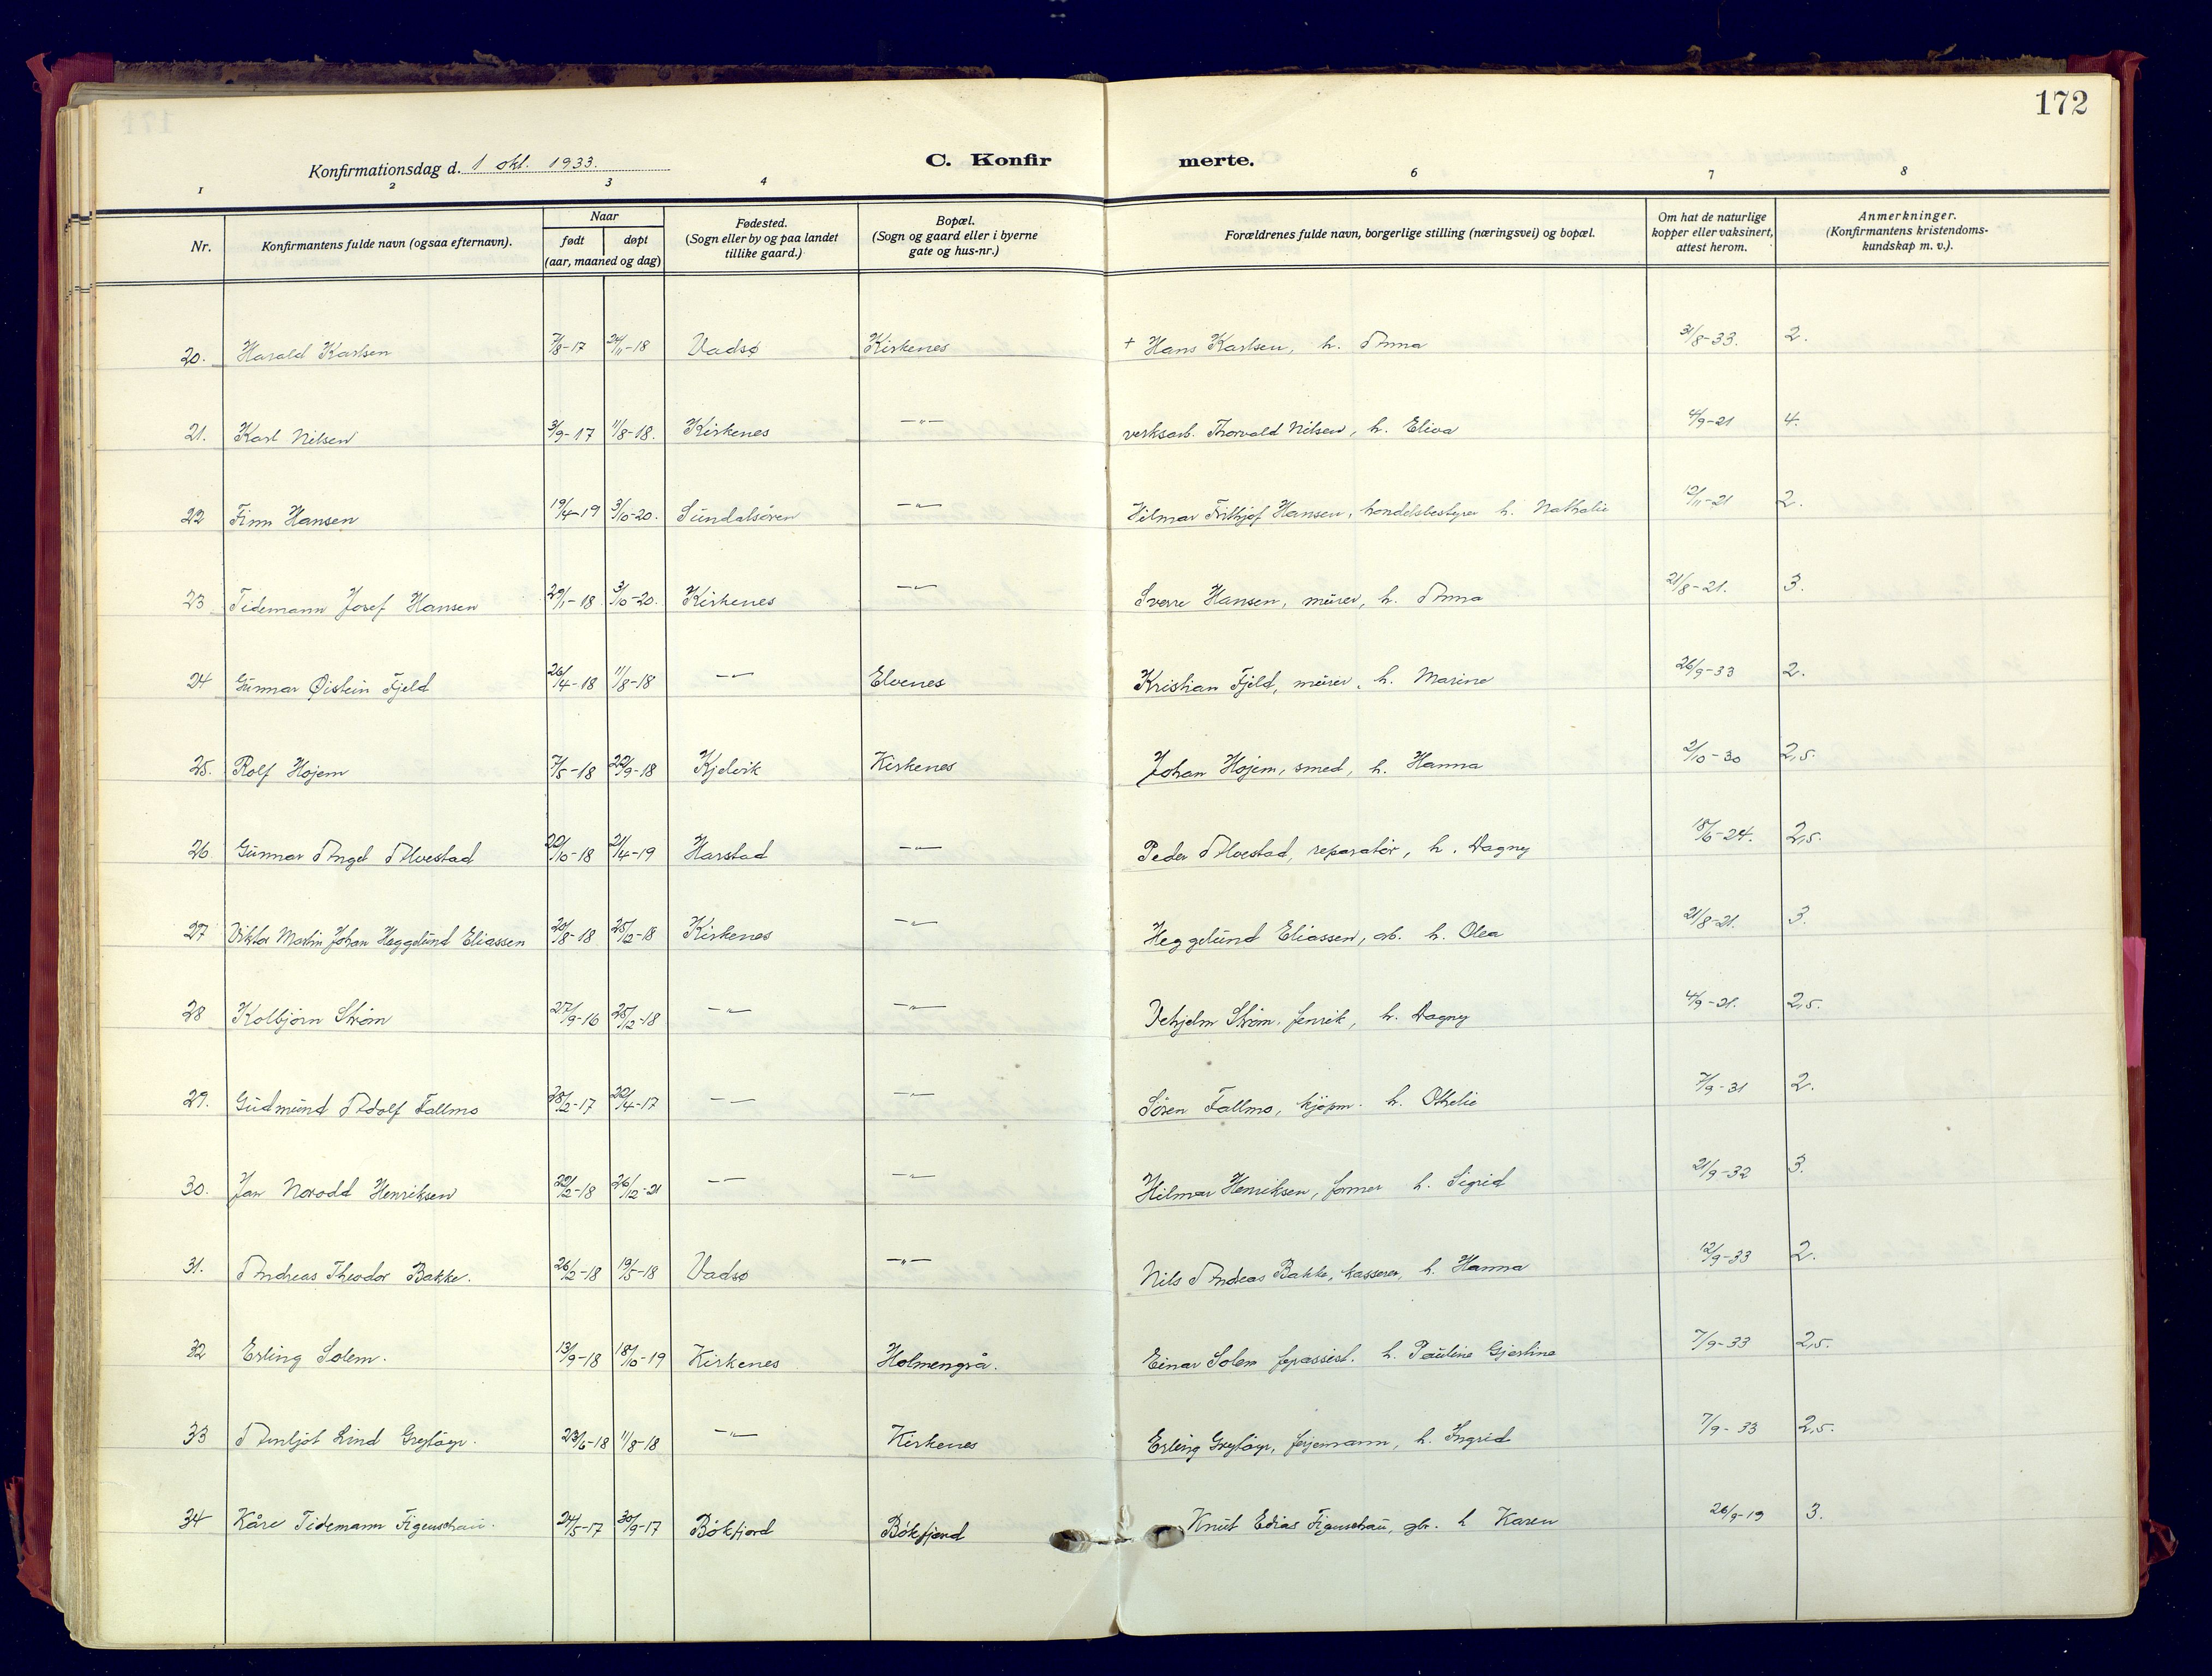 172
Konfirmationsdag d. 1 okt. 1933.
C. Konfir merte.
1 2 3 4 6 7 8
Nr. Konfirmantens fulde navn (ogsaa efternavn). Naar født døpt (aar, maaned og dag) Fødested. (Sogn eller by og paa landet tillike gaard.) Bopæl. (Sogn og gaard eller i byerne gate og hus-nr.) Forældrenes fulde navn, borgerlige stilling (næringsvei) og bopæl. Om hat de naturlige kopper eller vaksinert, attest herom. Anmerkninger. (Konfirmantens kristendoms-kundskap m. v.).
20. Harald Karlsen 7/8-17 24/11-18 Vadsø Kirkenes + Hans Karlsen, h. Anna 31/8-33. 2.
21. Karl Nilsen 3/9-17 11/8-18. Kirkenes —"— verksarb. Thorvald Nilsen, h. Eliva 4/9-21 4.
22 Finn Hansen 19/4-19 3/10-20. Sundalsøren —"— Hilmar Frithjof Hansen, handelsbestyrer h. Nathalie 12/11-21 2.
23 Tidemann Josef Hansen 29/1-18 3/10-20. Kirkenes —"— Sverre Hansen, murer, h. Anna 21/8-21. 3.
24 Gunnar Øistein Fjeld 26/4-18 11/8-18 —"— Elvenes Kristian Fjeld, murer, h. Marine 26/9-33 2.
25. Rolf Hojem 7/5-18 22/9-18 Kjelvik Kirkenes Johan Hojem, smed, h. Hanna 2/10-30 2,5.
26 Gunnar Angel Alvestad 20/10-18 21/4-19 Harstad —"— Peder Alvestad, reparatør, h. Dagny 18/6-24. 2,5.
27 Viktor Martin Johan Heggelund Eliassen 20/8-18 25/12-18 Kirkenes —"— Heggelund Eliassen, arb. h. Olea 21/8-21. 3.
28 Kolbjørn Strøm 27/9-16 25/12-18 —"— —"— Vehjelm Strøm, fenrik, h. Dagny 4/9-21. 2,5.
29. Gudmund Adolf Fallmo 28/2-17 22/4-17 —"— —"— Søren Fallmo, kjøpm. h. Othelie 7/9-31 2.
30. Jan Norodd Henriksen 22/12-18 26/12-21 —"— —"— Hilmar Henriksen, former h. Sigrid 21/9-32 3.
31. Andreas Theodor Bakke. 26/2-18 19/5-18 Vadsø —"— Nils Andreas Bakke, kasserer, h. Hanna 12/9-33 2.
32 Erling Solem. 13/9-18 18/10-19 Kirkenes Holmengrå. Einar Solem fyrassist. h. Pauline Gjertine 7/9-33 2,5.
33 Arnljot Lind 23/6-18 11/8-18 —"— Kirkenes Erling ferjemann, h. Ingrid 7/9-33 2,5.
34 Kåre Tidemann Figenschau. 24/5-17 30/9-17 Bøkfjord Bøkfjord Knut Edias Figenschau, gbr. h Karen 26/9-19 3.